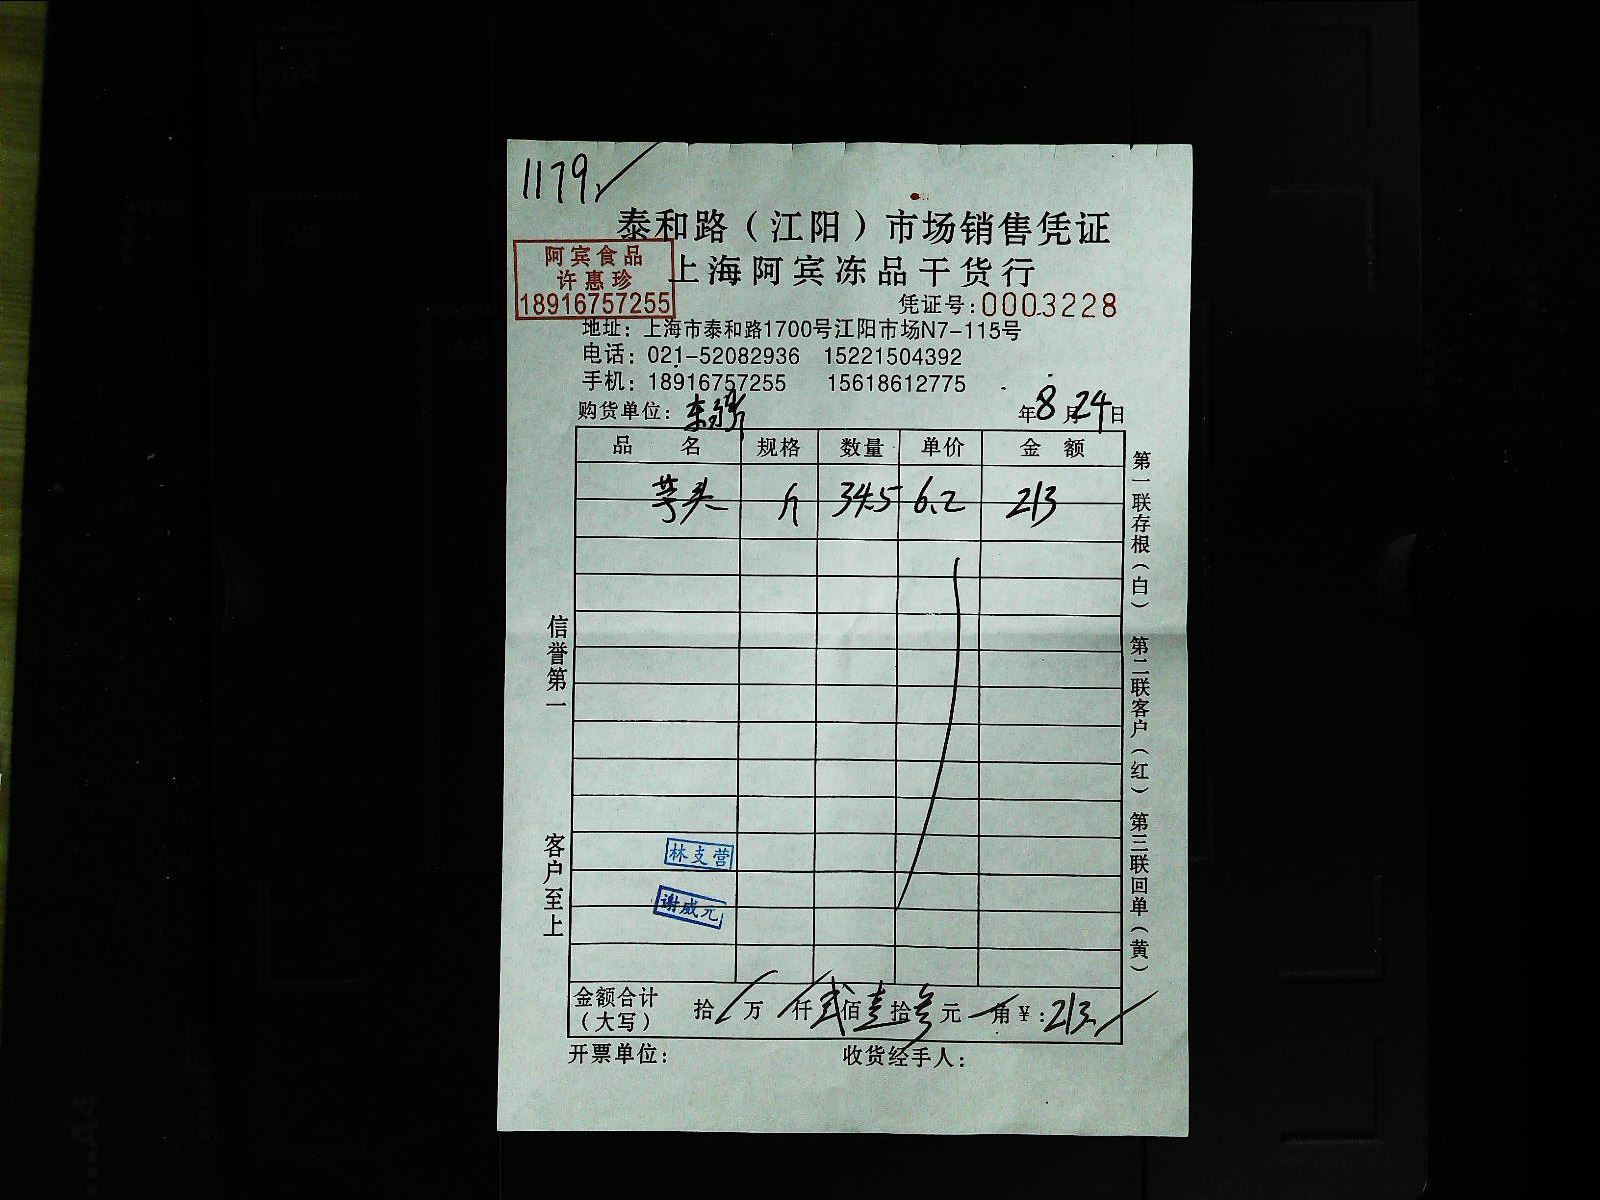 1179
泰和路（江阳）市场销售凭证
阿宾食品
许惠珍
18916757255
上海阿宾冻品干货行
凭证号:0003228
地址：上海市泰和路1700号江阳市场N7-115号
电话：021-52082936 15221504392
手机：18916757255 15618612775
购货单位： 年8月24日
品名 规格 数量 单价 金额
芋头 斤 34.5 6.2 213
第一联存根（白） 第二联客户（红） 第三联回单（黄）
信誉第一
客户至上
林支营
谢威元
金额合计（大写） 拾 万 仟 贰佰壹拾叁元 角￥：213
开票单位： 收货经手人：